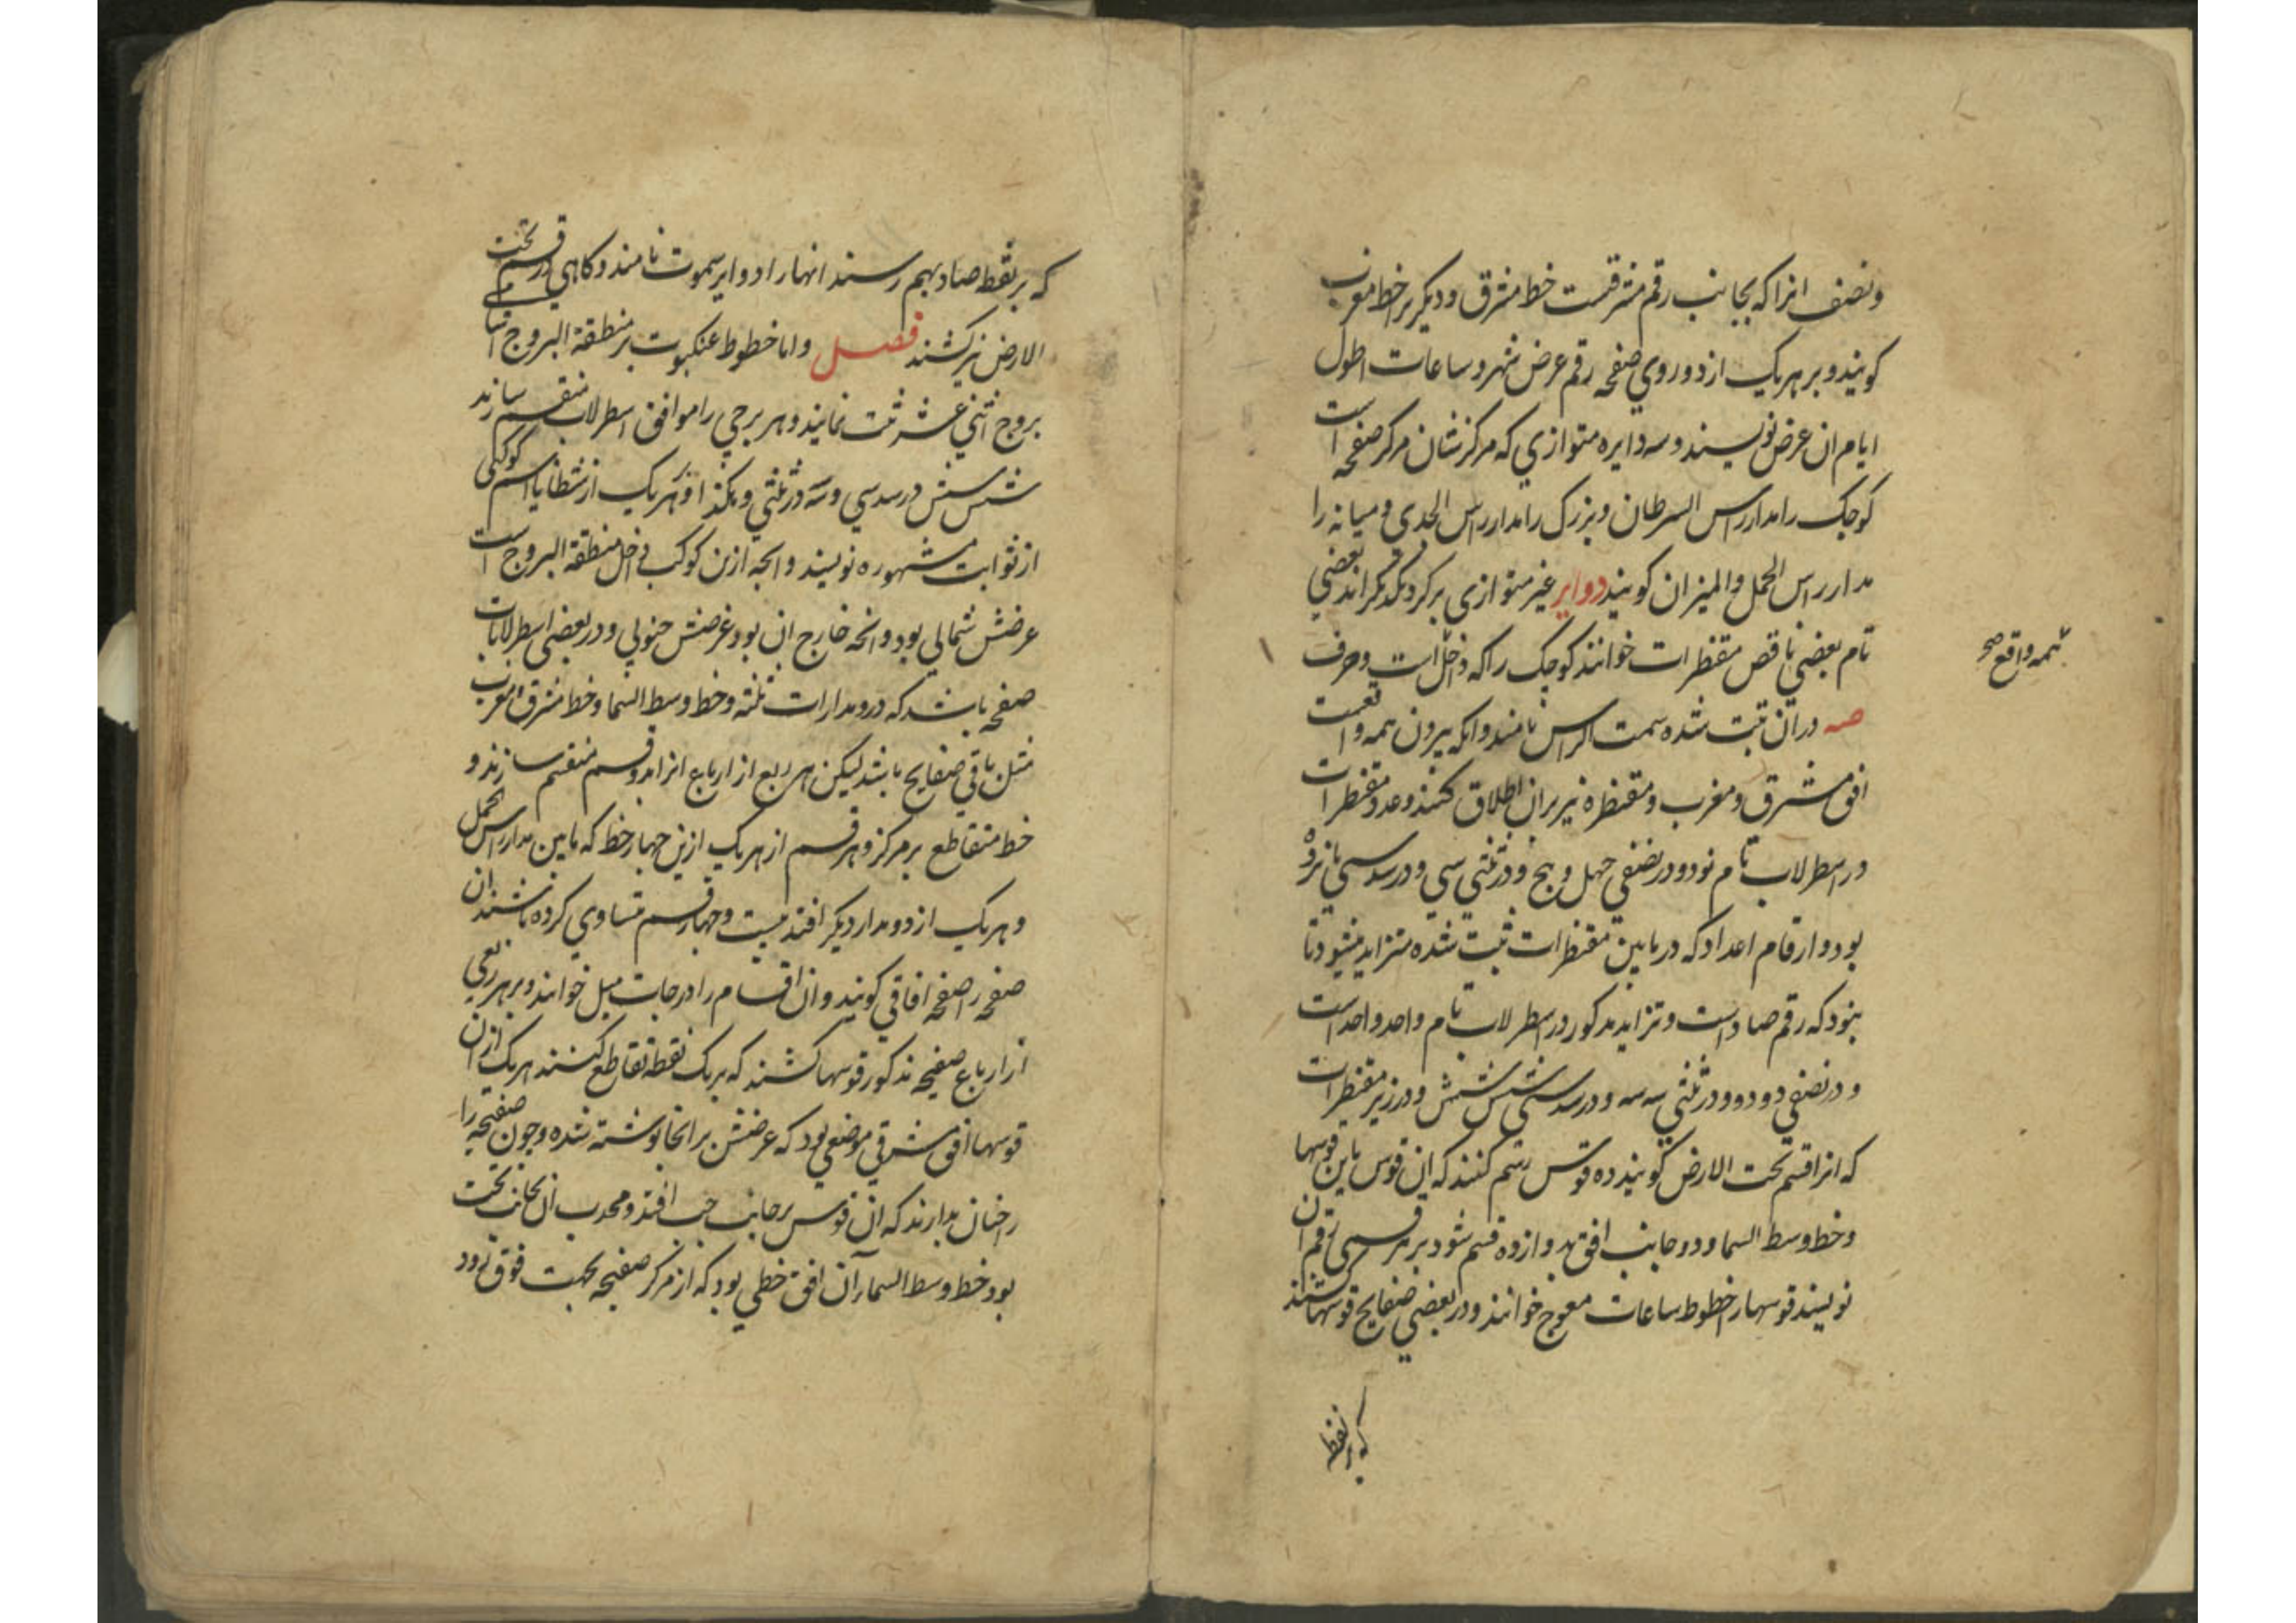 ونصف انرا که بجانب رقم مشرقست خط مشرق و دیکر بر خط مغرب
کویند و بر هر یک از دو روی صفحه رقم عرض شهر و ساعات اطول
ایام ان عرض نویسند و سه دایره متوازی که مرکزشان مرکز صفحه است
کوچک را مدار راس السرطان و بزرک را مدار راس الجدی و میانه را
مدار راس الحمل و المیزان کویند دوایر غیر متوازی بر کرد یکدیکراند بعضی
تام بعضی ناقص مقنطرات خوانند کوچک را که داخل است و حرف
صه در ان ثبت شده سمت الراس نامند و انکه بیرون همه واقعست
همه واقع صح
افق مشرق و مغرب و مقنطره نیز بران اطلاق کنند و عدد مقنطرات
در اسطرلاب تام نود و در نصفی چهل و پنج و در ثلثی سی و در سدسی پانزده
بود و ارقام اعداد که در مابین مقنطرات ثبت شده متزاید میشود تا
بنود که رقم صاد است و تزاید مذکور در اسطرلاب تام واحد واحد است
و در نصفی دو دو و در ثلثی سه سه و در سدسی شش شش و در زیر مقنطرات
که انرا قسم تحت الارض کویند ده قوس رسم کنند که این قوس مابین قوسها
و خط وسط السما و دو جانب افق بدوازده قسم شود بر هر قسمی رقم ان
نویسند قوسها را خطوط ساعات معوج خوانند و در بعضی صفایح قوسها کشند
که بر نقطه
که بر نقطه صاد بهم رسند انها را دوایر سموت نامند و کاهی در قسم تحت
الارض نیز کشند فصل و اما خطوط عنکبوت بر منطقة البروج اسامی
بروج اثنی عشر ثبت نمایند و هر برجی را موافق اسطرلاب منقسم سازند
شش شش در سدسی و سه در ثلثی و هکذا و بر هر یک از شظایا اسم کوکبی
از ثوابت مشهوره نویسند و انچه ازین کوکب داخل منطقة البروج است
عرضش شمالی بود و انچه خارج ان بود عرضش جنوبی و در بعضی اسطرلابات
صفحه باشد که درو مدارات ثلثه و خط وسط السما و خط مشرق و مغرب
مثل باقی صفایح باشد لیکن هر ربع از ارباع انرا بدو قسم منقسم سازند و
خط متقاطع بر مرکز و هر قسم از هر یک ازین چهار خط که مابین مدار راس الحمل
و هر یک از دو مدار دیکر افتد بیست و چهار قسم متساوی کرده باشند ان
صفحه را صفحه افاقی کویند و ان اقسام را درجات میل خوانند و بر هر ربعی
از ارباع صفیحه مذکور قوسها کشند که بر یک نقطه تقاطع کنند هر یک ازان
قوسها افق مشرقی موضعی بود که عرضش بر انجا نوشته شده و چون صفیحه را
چنان بدارند که ان قوس بر جانب چپ افتد و محدب ان بجانب تحت
بود خط وسط السما ان افق خطی بود که از مرکز صفیحه بجهت فوق رود